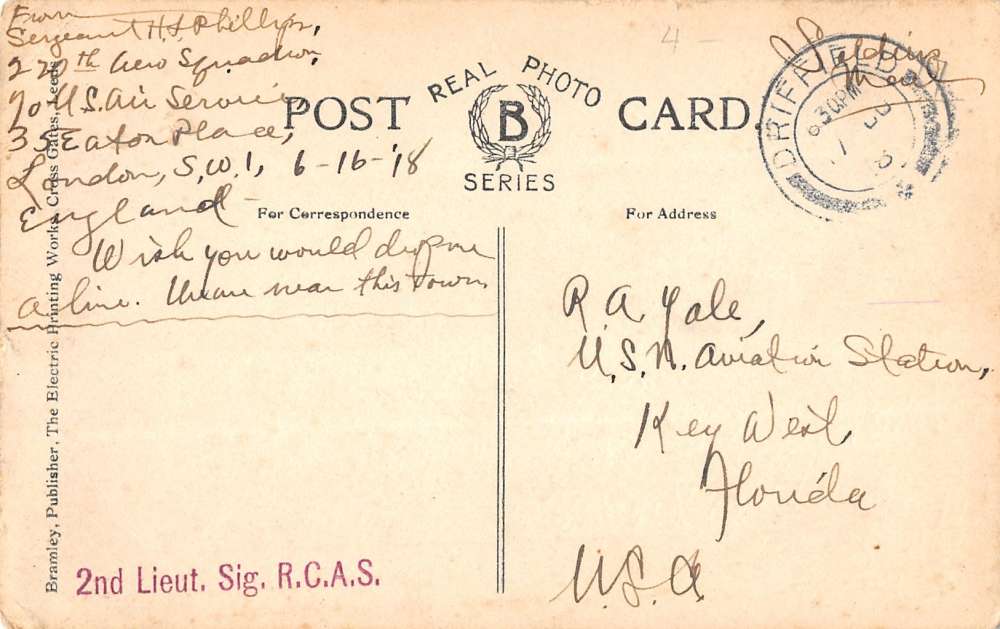 From
Sergeant H. L. Phillips,
220th Aero Squadron,
90 U.S. Air Service,
35 Eaton Place,
London, S.W.1, 6-16-'18
England
Wish you would drop me
a line.Une near this town.
POST CARD
REAL PHOTO
B
SERIES
For Correspondence
For Address
4 -
Soldiers
Mail
DRIFFIELD
630PM
R A Yale,
U.S.N. Aviation Station,
Key West,
Florida
U.S.A
Bramley, Publisher, The Electric Printing Works, Cross Gates, Leeds
2nd Lieut. Sig. R.C.A.S.